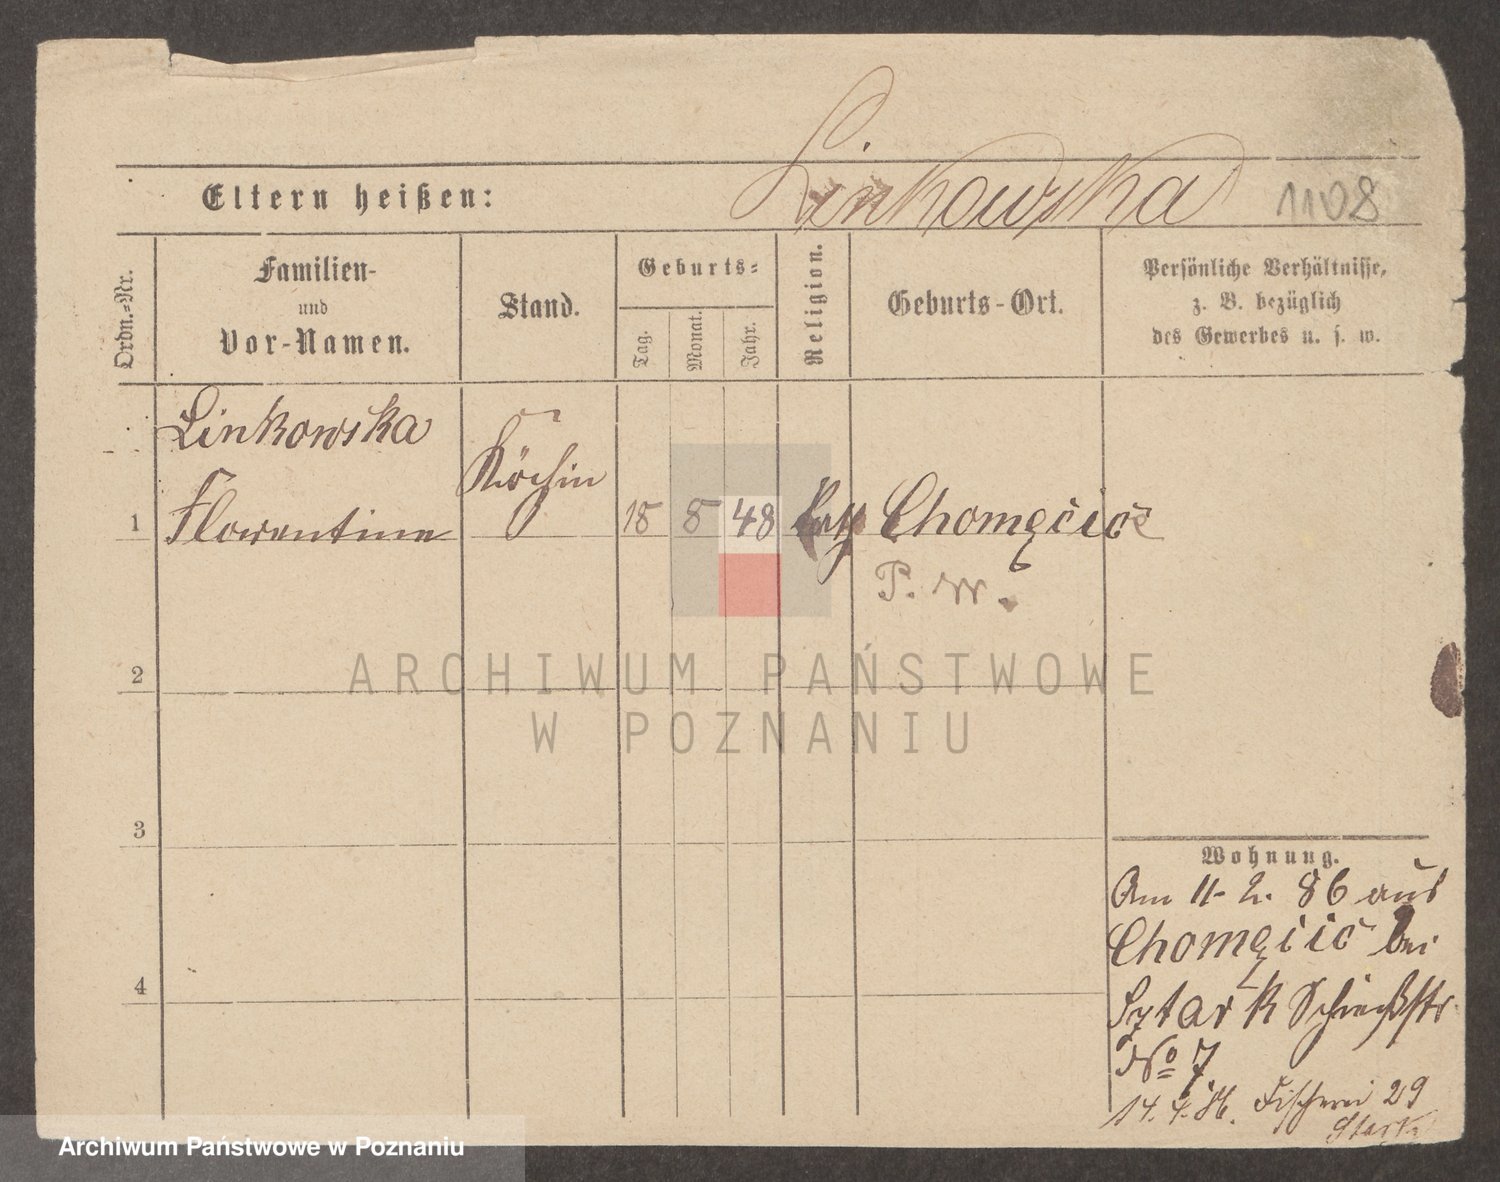 Linkowska 1108
Eltern heißen:
Ordn.-Nr.
Familien-
und
Vor-Namen.
Stand.
Geburts-
Tag.
Monat.
Jahr.
Religion.
Geburts-Ort.
Persönliche Verhältnisse,
z. B. bezüglich
des Gewerbes u. s. w.
Linkowska
Köchin
1 Florentine 18 8 48 kath Chomęcic
P. W.
2
ARCHIWUM PAŃSTWOWE
W POZNANIU
3
4
Wohnung.
Am 11. 2. 86 aus
Chomęcic bei
Sztark Schießstr.
No 7
14. 4. 86. Fischerei 29
Stark
Archiwum Państwowe w Poznaniu